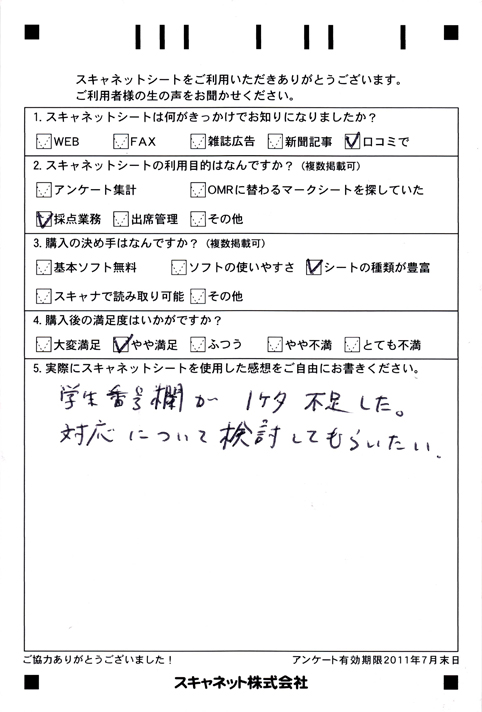 スキャネットシートをご利用いただきありがとうございます。
ご利用者様の生の声をお聞かせください。
1. スキャネットシートは何がきっかけでお知りになりましたか？
WEB FAX 雑誌広告 新聞記事 口コミで
2. スキャネットシートの利用目的はなんですか？（複数掲載可）
アンケート集計 OMRに替わるマークシートを探していた
採点業務 出席管理 その他
3. 購入の決め手はなんですか？（複数掲載可）
基本ソフト無料 ソフトの使いやすさ シートの種類が豊富
スキャナで読み取り可能 その他
4. 購入後の満足度はいかがですか？
大変満足 やや満足 ふつう やや不満 とても不満
5. 実際にスキャネットシートを使用した感想をご自由にお書きください。
学生番号欄が 1ケタ 不足した。
対応について検討してもらいたい。
ご協力ありがとうございました！ アンケート有効期限2011年7月末日
スキャネット株式会社